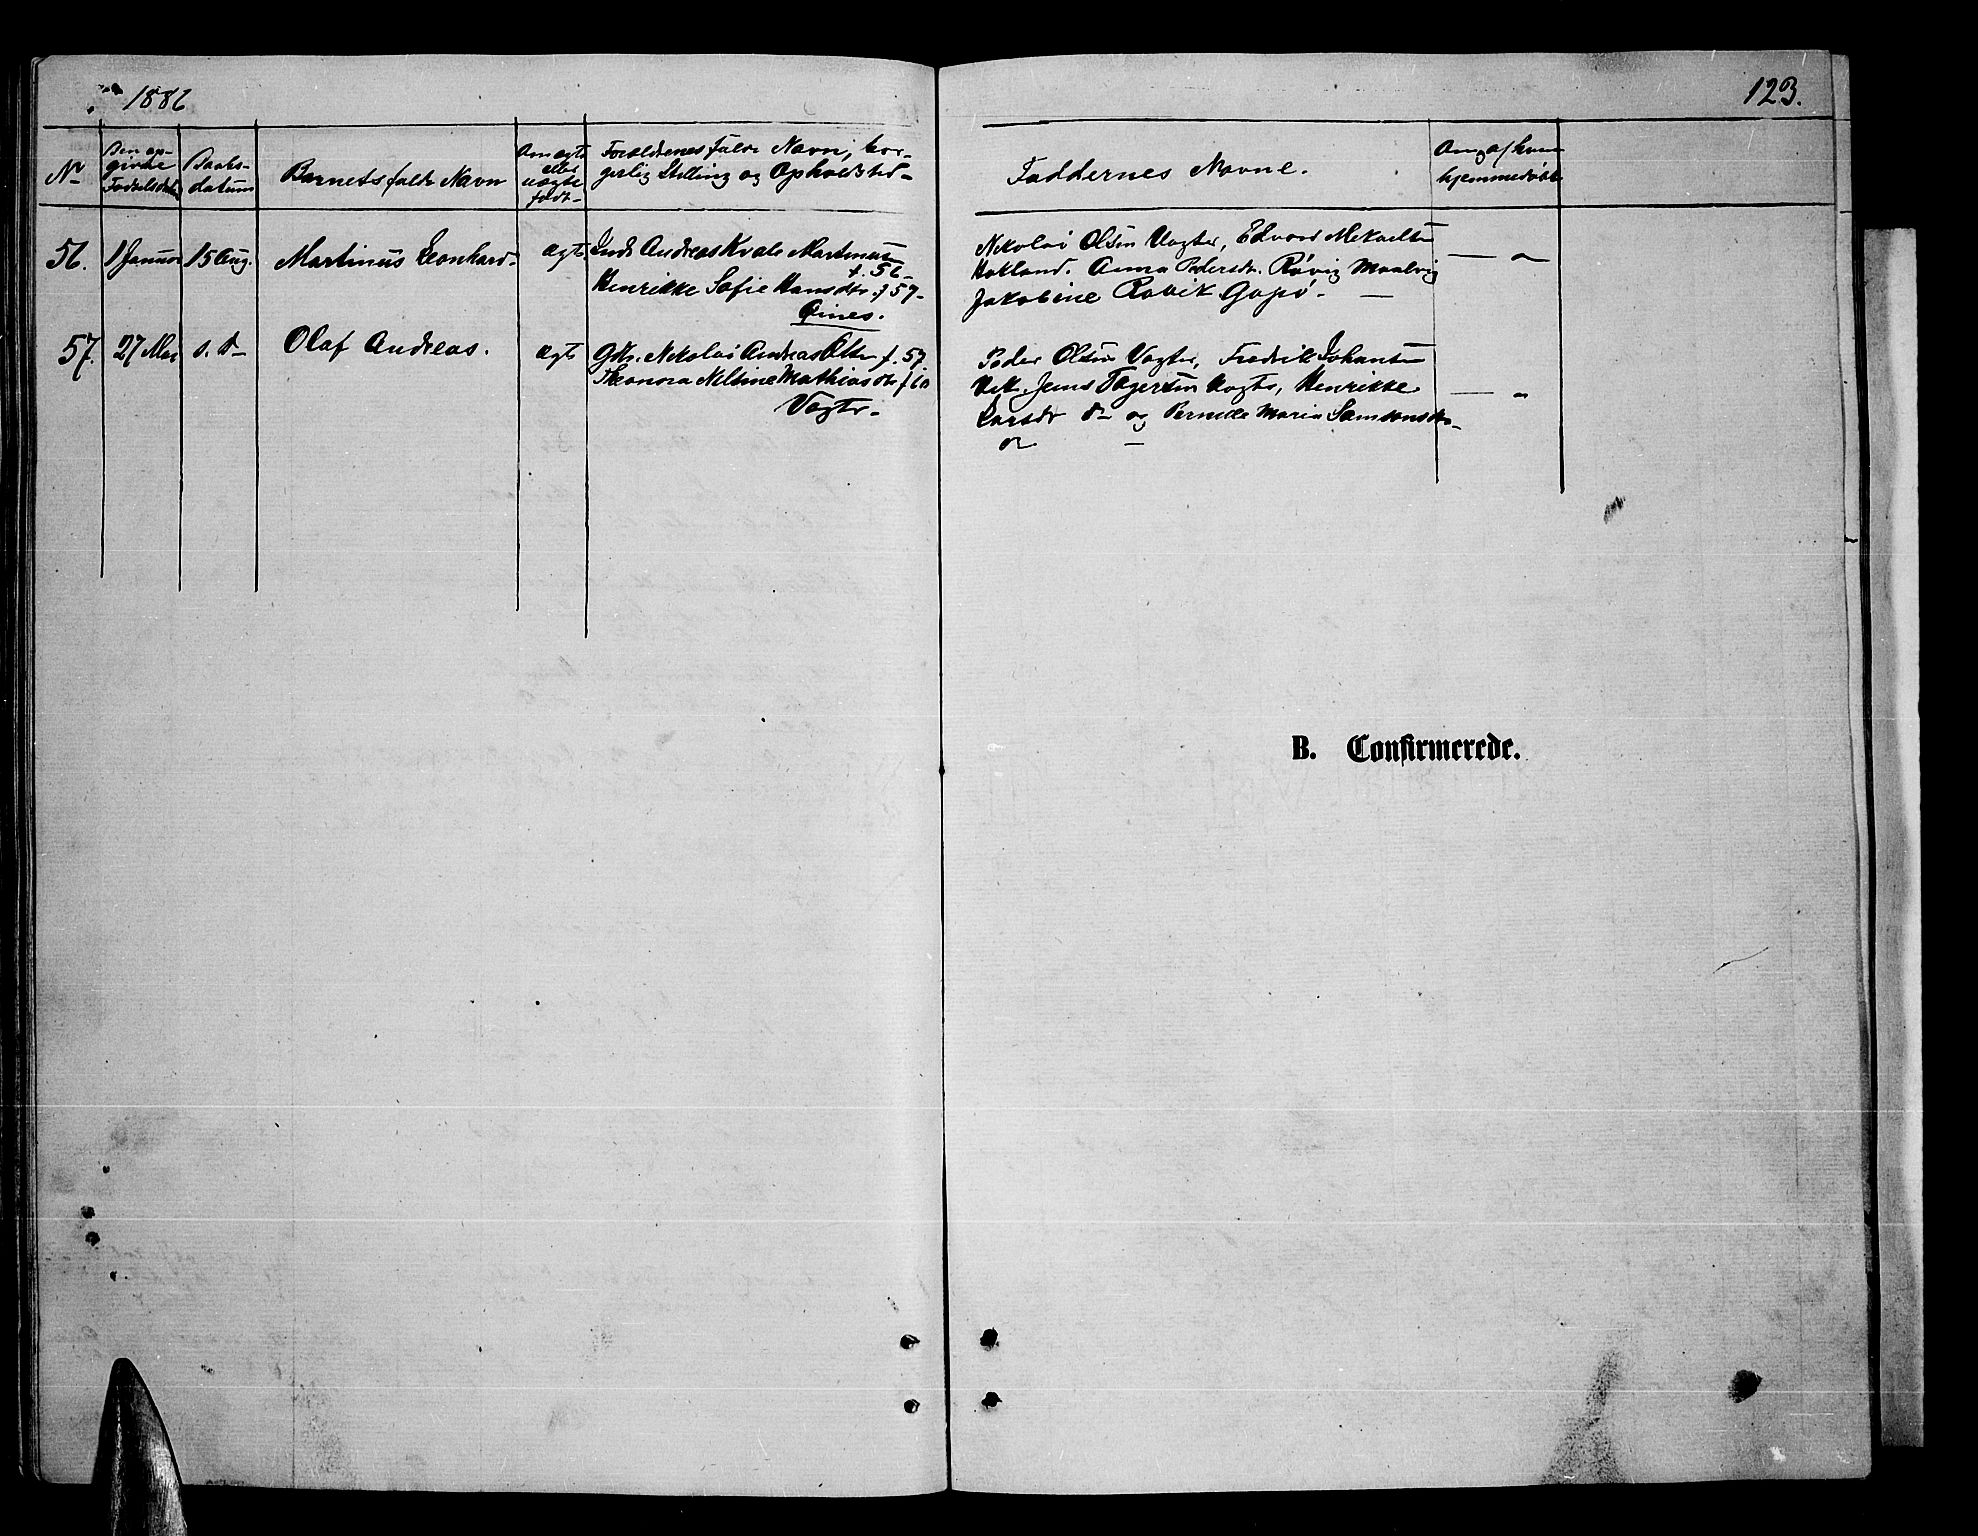 1886
123.
No
Den op-
givne
Fødselsdatum
Daabs-
datum
Barnets fulde Navn
Om ægte
eller
uægte
født-
Forældrenes fulde Navn, bor-
gerlig Stilling og Opholdsted-
Faddernes Navne.
Ang af hvem
hjemmedøbt
56.
1 Januar
15 Aug.
Martinus Leonhard-
ægt
Inds Andreas Kvale Martinus
f. 56-
Henrikke Sofie Hansdtr. f 57-
Øines.
Nikolai Olsen Vagter, Edvard Mekaelsen
Hokland. Anna Pedersdr. Røvig Maalvig
Jakobine Rovik Gapø-
57.
27 Mai
s. d-
Olaf Andreas.
ægt
Gdbr. Nikolai Andreas Olsen f. 57.
Theonora Neltine Mathiasdtr f 60
Vagter-
Peder Olsen Vagter, Fredrik Johansen
Jens Vagter, Henrikke
Larsdr do og Pernelle Maria Samsonsdtr-
do
B. Confirmerede.